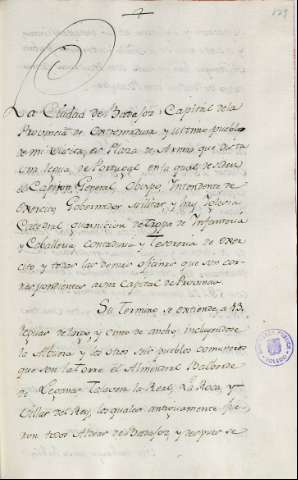 129
La Ciudad de Badajoz, Capital de la
Provincia de Extremadura y ultimo pueblo
de mi Visita, es Plaza de Armas que dista
una legua de Portugal en la qual reside
el Capitan General, Obispo, Intendente de
Exercito, Governador Militar y hay Iglesia
Catedral, guarnicion de Tropa de Infanteria
y Caballeria, contaduria y Tesoreria de Exer
cito, y todas las demas oficinas que son cor-
respondientes a una Capital de Provincia.
Su Termino se extiende a 13,
leguas de largo, y cinco de ancho, incluyendose
la Albuera y los otros seis pueblos comuneros
que son la Torre el Almendral Balberde
de Leganes Talavera la Real, La Roca, y
Villar del Rey, los quales antiguamente fue-
ron todos Aldeas de Badajoz y despues se
TOLEDO